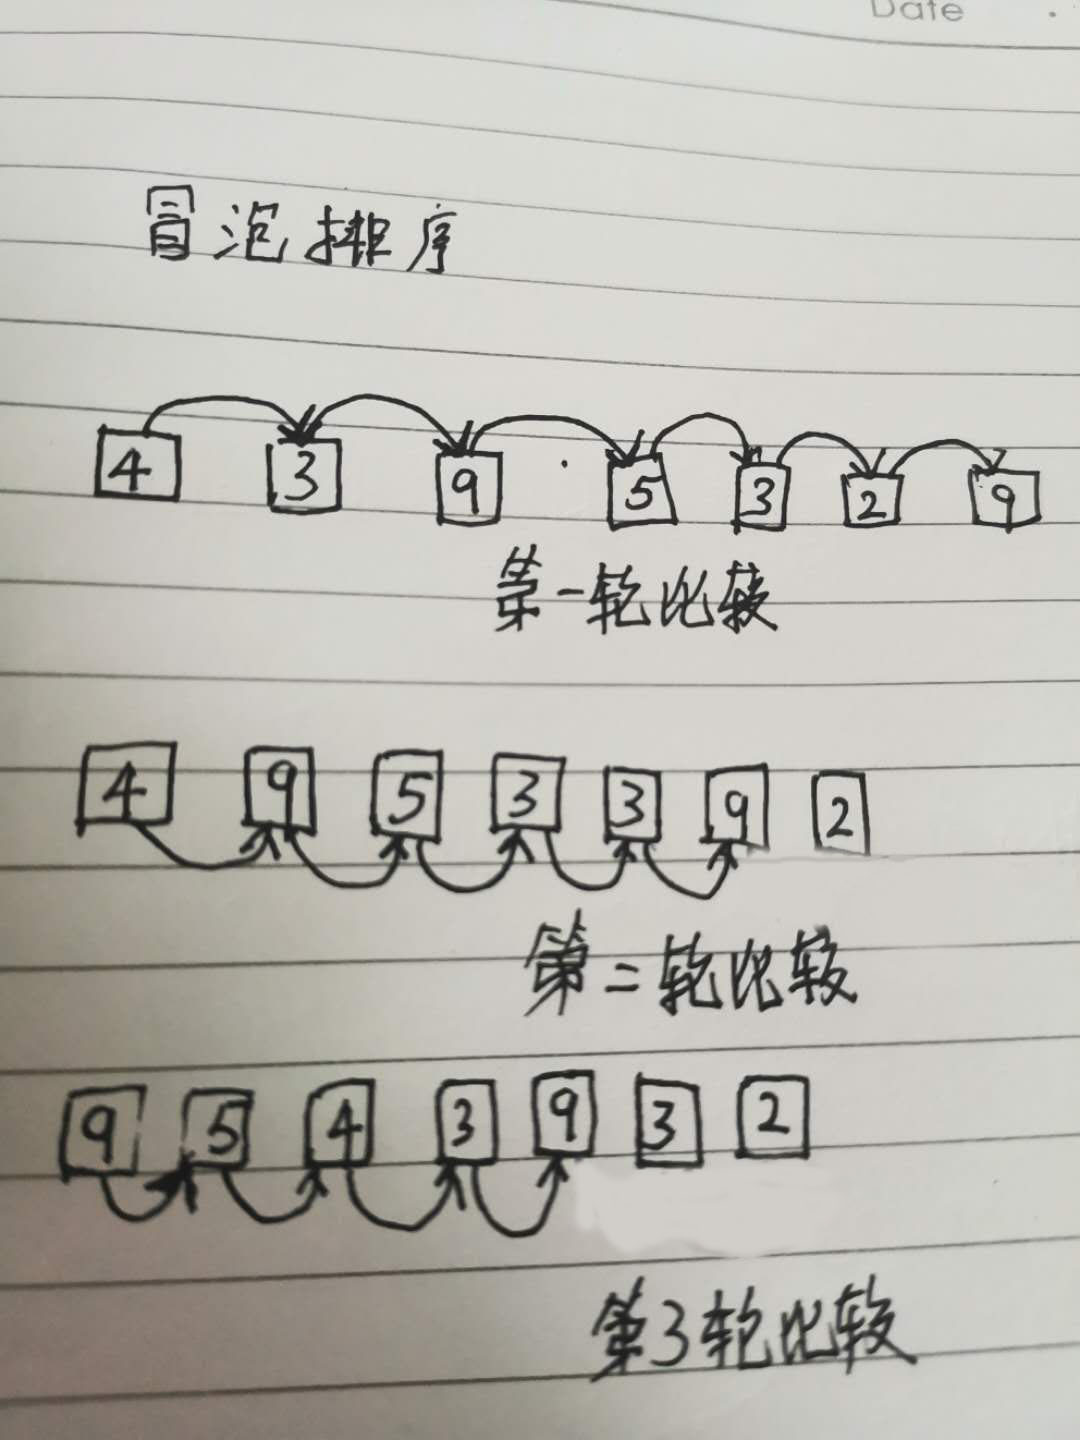 Date
冒泡排序
4 3 9 5 3 2 9
第一轮比较
4 9 5 3 3 9 2
第二轮比较
9 5 4 3 9 3 2
第3轮比较